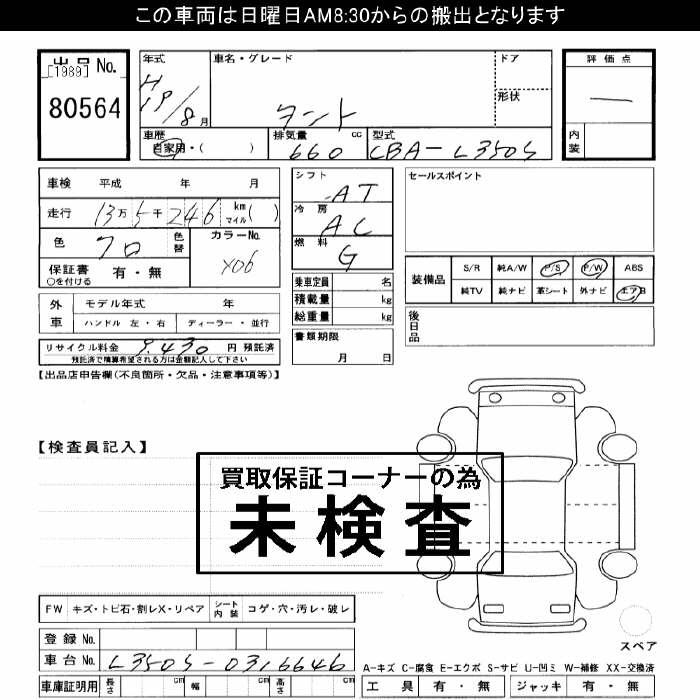 この車両は日曜日AM8:30からの搬出となります
出品 No.
[1989]
80564
年式
H
19/8月
車名・グレード
タント
ドア
形状
評価点
—
内装
車歴
自家用・( )
排気量 cc
660
型式
CBA-L350S
車検 平成 年 月
走行 13万5千246 km マイル( )
色 クロ 色替
カラーNo.
X06
保証書 有・無
○を付ける
外車 モデル年式 年
ハンドル 左・右 ディーラー・並行
リサイクル料金 9,430 円 預託済
預託済で精算希望される方は金額記入して下さい
シフト AT
冷房 AC
燃料 G
乗車定員 名
積載量 kg
総重量 kg
書類期限
月 日
セールスポイント
装備品
S/R 純A/W P/S P/W ABS
純TV 純ナビ 革シート 外ナビ エアB
後日品
【出品店申告欄(不良箇所・欠品・注意事項等)】
【検査員記入】
買取保証コーナーの為
未検査
FW キズ・トビ石・割レX・リペア シート内装 コゲ・穴・汚レ・破レ
登録 No.
車台 No. L350S-0316646
車庫証明用 長さ cm 幅 cm 高さ cm
スペア
A-キズ C-腐食 E-エクボ S-サビ U-凹ミ W-補修 XX-交換済
工具 有・無 ジャッキ 有・無